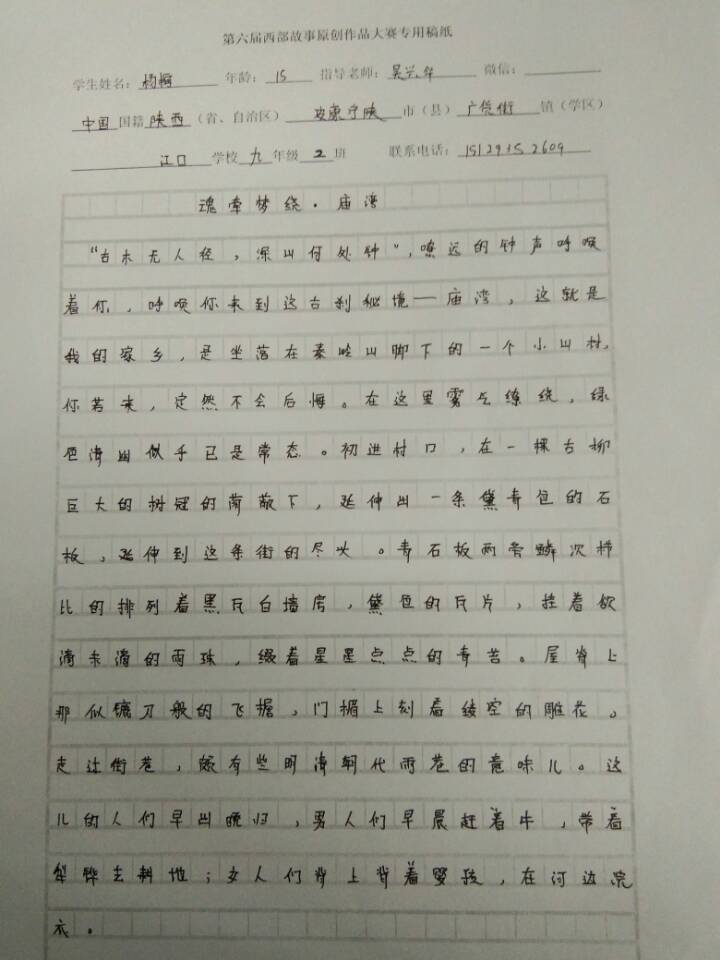 第六届西部故事原创作品大赛专用稿纸
学生姓名：杨 年龄：15 指导老师：吴兴华 微信：
中国国籍陕西（省、自治区）安康宁陕市（县）广货街镇（学区）
江口学校九年级2班 联系电话：15129352609
魂牵梦绕·庙湾
“古木无人径，深山何处钟”，嘹远的钟声呼唤
着你，呼唤你来到这古刹秘境——庙湾，这就是
我的家乡，是坐落在秦岭山脚下的一个小山村，
你若来，定然不会后悔。在这里雾气缭绕，绿
色清幽似乎已是常态。初进村口，在一棵古柳
巨大的树冠的荫蔽下，延伸出一条黛青色的石
板，延伸到这条街的尽头。青石板两旁鳞次栉
比的排列着黑瓦白墙房，黛色的瓦片，挂着欲
滴未滴的雨珠，缀着星星点点的青苔。屋脊上
那似镰刀般的飞檐，门楣上刻着镂空的雕花。
走过街巷，颇有些明清朝代雨巷的意味儿。这
儿的人们早出晚归，男人们早晨赶着牛，带着
犁铧去耕地；女人们背上背着婴孩，在河边浣
衣。